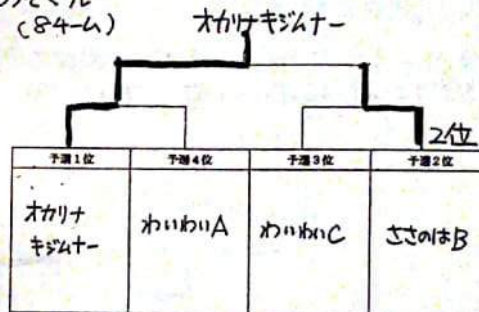 (8チーム)
オカリナキジムナー
2位
予選1位 予選4位 予選3位 予選2位
オカリナ
キジムナー
わいわいA
わいわいC
ささのはB